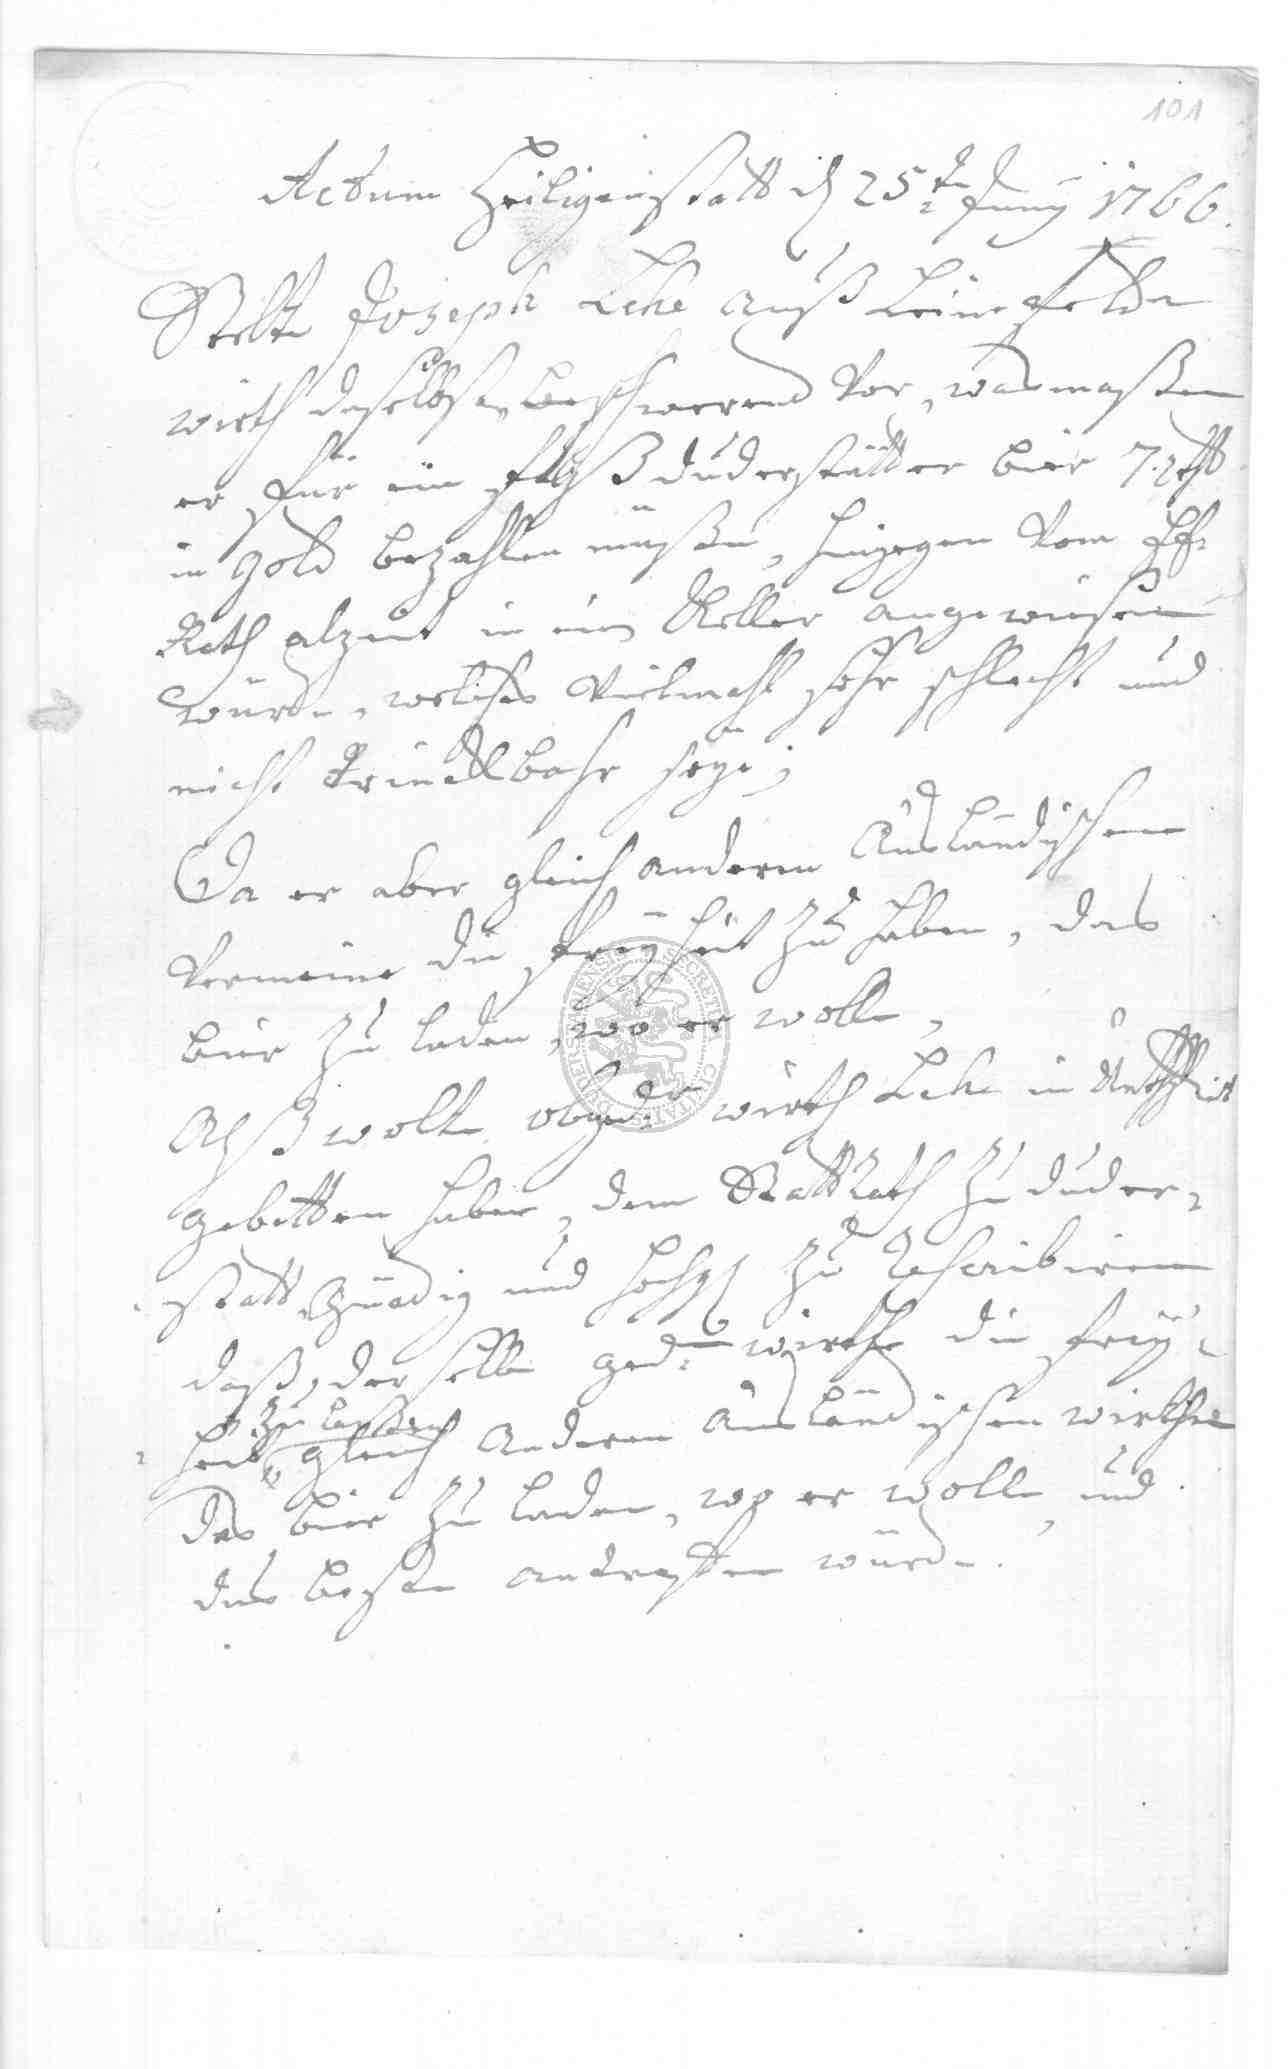 101
Actum Heiligenstatt d 25ten Juny 1766.
Stelte Joseph Lehe auß Leinefelde
wirth daselbsten beschwerend vor, was maßen
er für ein faß duderstätter bier 7 rthl
in gold bezahlen müßen, hingegen vom
Rath alzeit in ein Keller angewiesen
würde, welches vielmahl sehr schlecht und
nicht trinckbahr seye;
Da er aber gleich anderen Ausländischen
vermeine die freyheit zu haben, das
bier zu laden, wo er wolle,
Alß wolte obged. wirth Lehe in
gebetten haben, dem StattRath zu duder-
statt gnädig und hochg zu rescribiren
daß derselbe ged. wirthe die frey-
heit zu laßen gleich anderen ausländischen wirthen
das bier zu laden, wo er wolle und
das beste antreffen würde.
SECRETI CIVITATIS DUDERSTADIENSIS